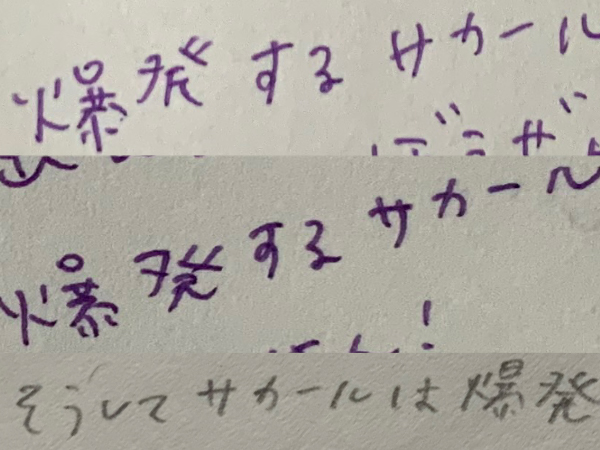 爆発するサカール
爆発するサカール
そうしてサカールは爆発